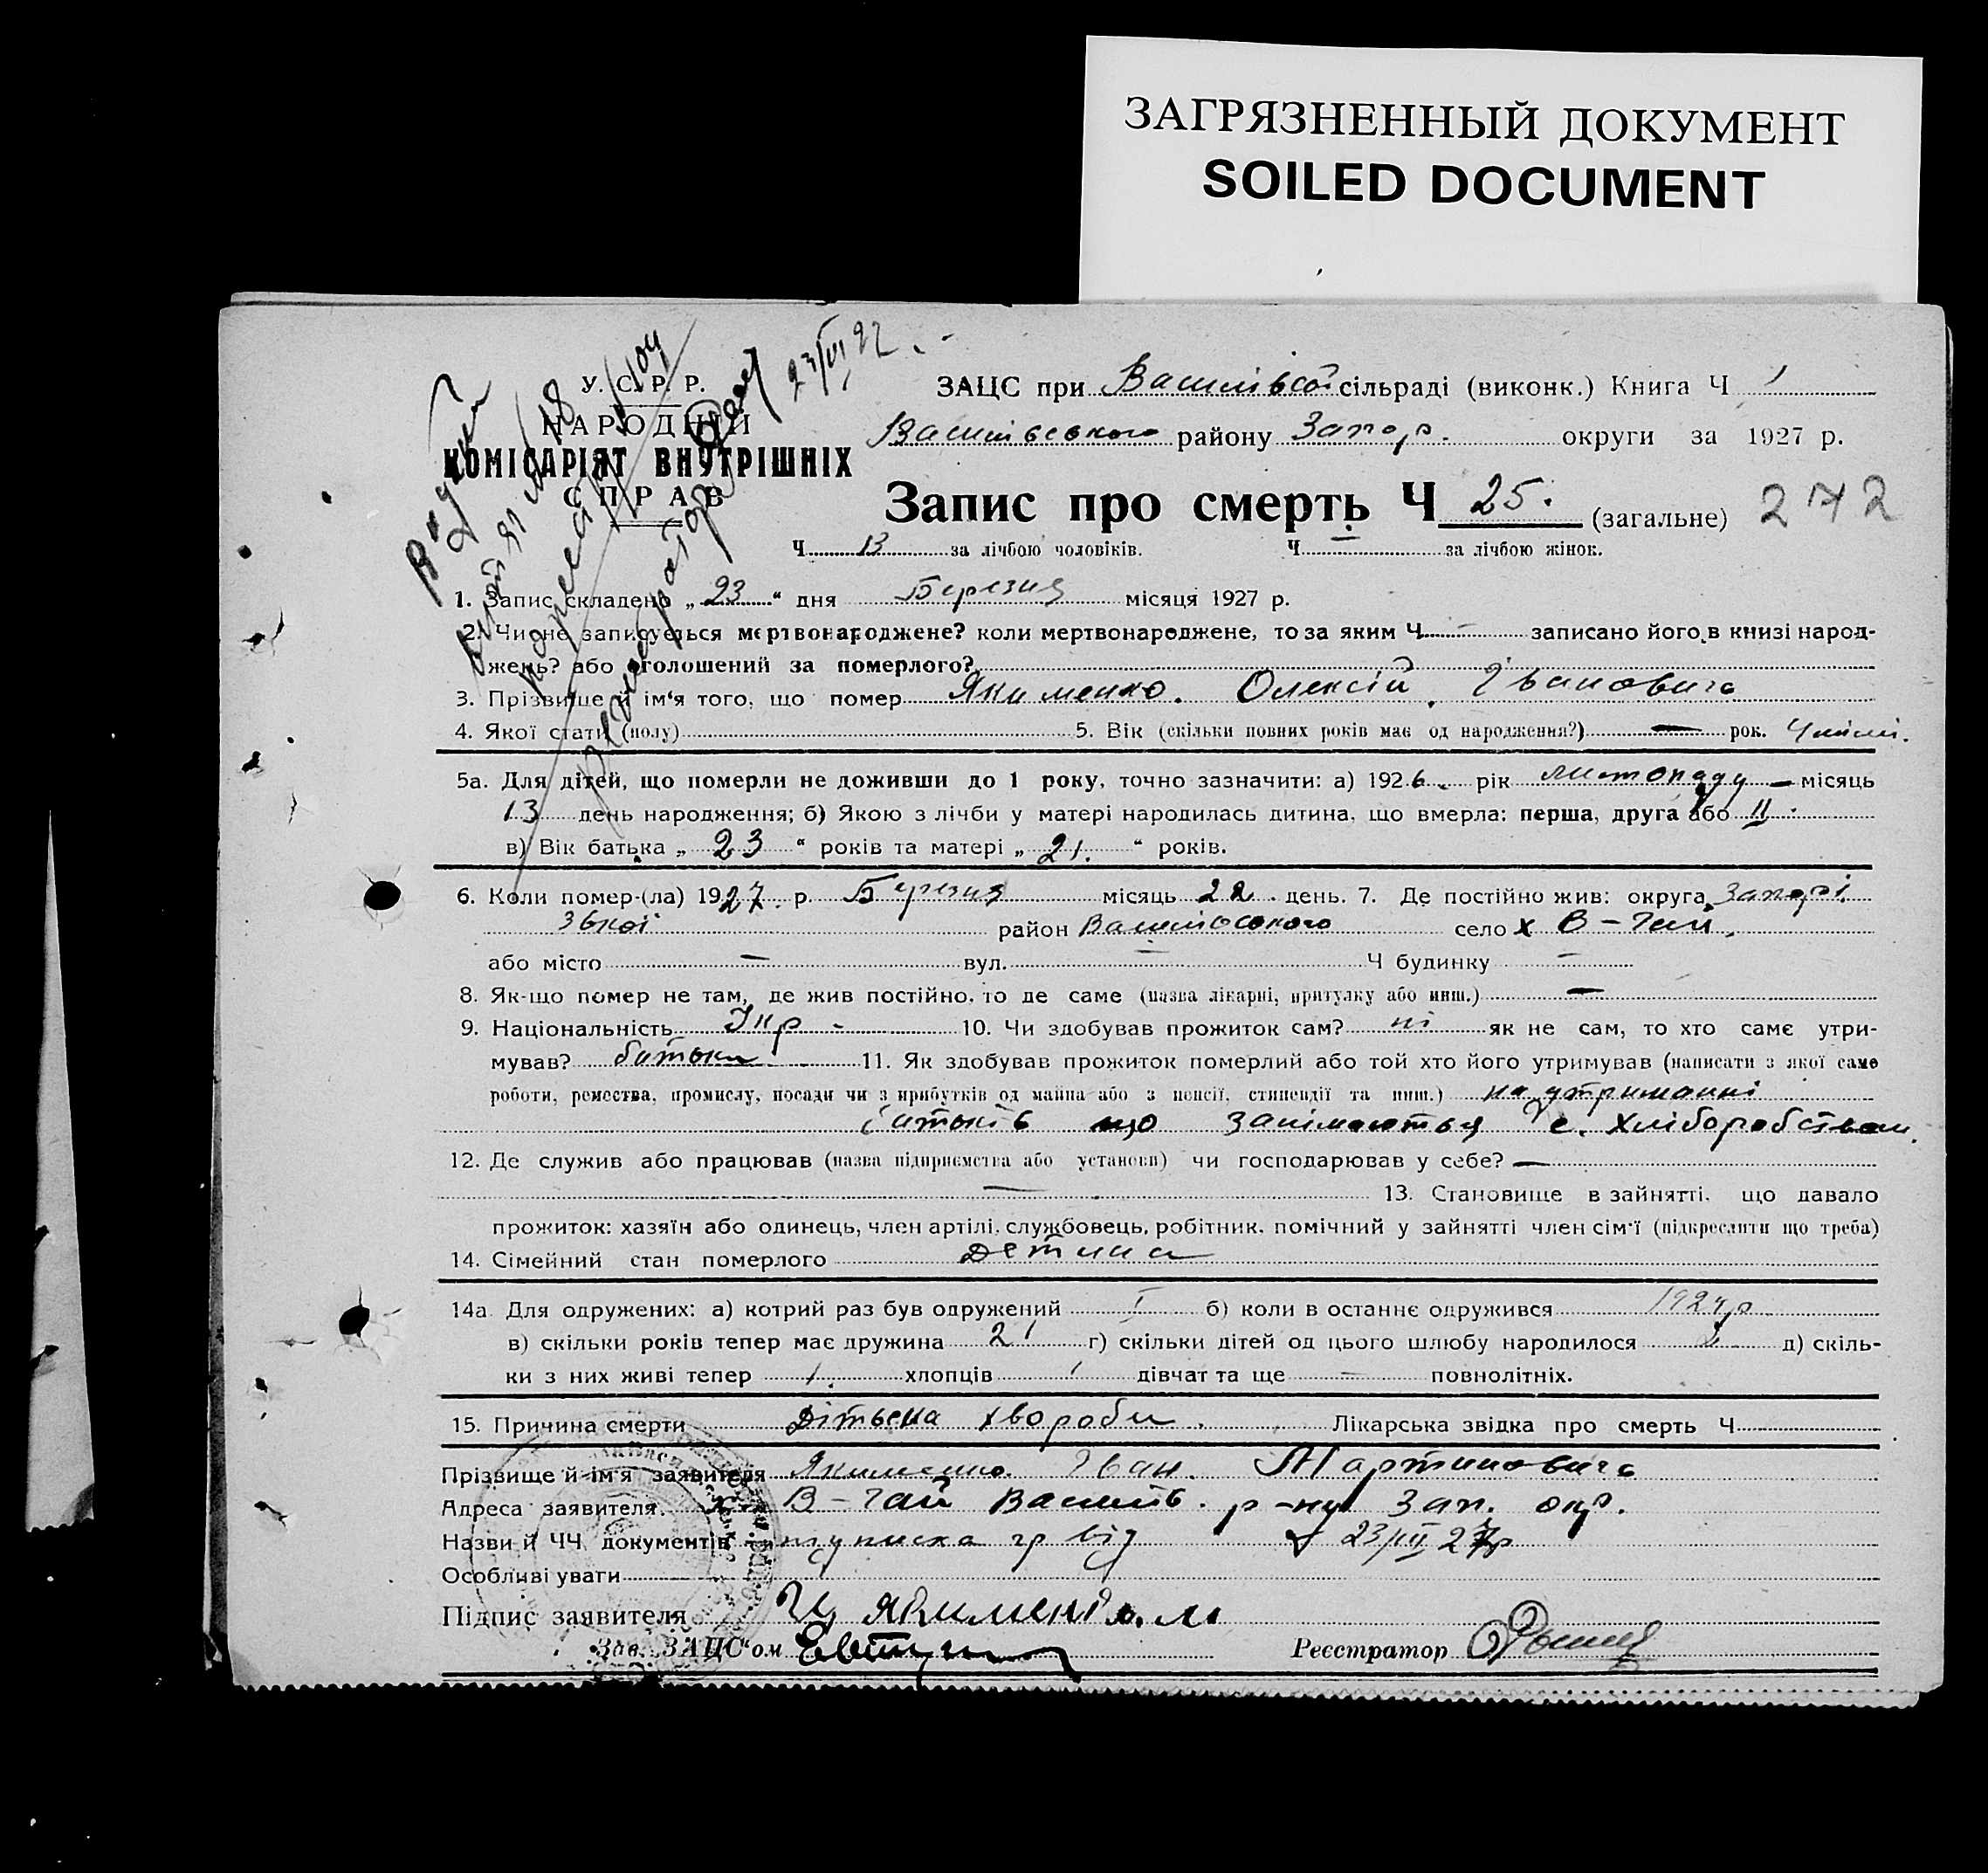 ЗАГРЯЗНЕННЫЙ ДОКУМЕНТ
SOILED DOCUMENT
У. С. Р. Р.
НАРОДНІЙ
КОМІСАРІЯТ ВНУТРІШНІХ
СПРАВ
23/VI 27
ЗАЦС при Василівској сільраді (виконк.) Книга Ч 1
Василівського району Запор. округи за 1927 р.
Запис про смерть Ч 25. (загальне) 272
Ч 13 за лічбою чоловіків. Ч — за лічбою жінок.
1. Запис складено „23“ дня Березня місяця 1927 р.
2. Чи не записується мертвонароджене? коли мертвонароджене, то за яким Ч. — записано його в книзі народ-
жень? або оголошений за померлого?
3. Прізвище й ім'я того, що помер Якименко. Олексій Іванович
4. Якої стати (полу) 5. Вік (скільки повних років має од народження?) — рок. 4 місяці.
5а. Для дітей, що померли не доживши до 1 року, точно зазначити: а) 1926 рік листопаду — місяць
13 день народження; б) Якою з лічби у матері народилась дитина, що вмерла: перша, друга або II
в) Вік батька „23“ років та матері „21.“ років.
6. Коли помер-(ла) 1927 р. Березня місяць 22 день. 7. Де постійно жив: округа Запорі
зької район Василівського село х В-Гай.
або місто — вул. — Ч будинку —
8. Як-що помер не там, де жив постійно, то де саме (назва лікарні, притулку або инш.) —
9. Національність Укр - 10. Чи здобував прожиток сам? ні як не сам, то хто саме утри-
мував? батьки 11. Як здобував прожиток померлий або той хто його утримував (написати з якої саме
роботи, ремества, промислу, посади чи з прибутків од майна або з пенсії, стипендії та инш.) на утриманні
батьків що занімаються с. хліборобством.
12. Де служив або працював (назва підприємства або установи) чи господарював у себе? —
— 13. Становище в зайнятті, що давало
прожиток: хазяїн або одинець, член артілі, службовець, робітник, помічний у зайнятті член сім'ї (підкреслити що треба)
14. Сімейний стан померлого Детина
14а. Для одружених: а) котрий раз був одружений I б) коли в останнє одружився 1924р
в) скільки років тепер має дружина 21 г) скільки дітей од цього шлюбу народилося д) скіль-
ки з них живі тепер 1. хлопців 1 дівчат та ще — повнолітніх.
15. Причина смерти Дітьска хвороби. Лікарська звідка про смерть Ч
Прізвище й ім'я заявителя Якименко Іван. Мартинович
Адреса заявителя х. В-Гай Василів. р-ну Зап. окр.
Назви й ЧЧ документів гр від 23/III 27р
Особливі уваги
Підпис заявителя Якименко. м
Зав. ЗАЦС'ом Реєстратор